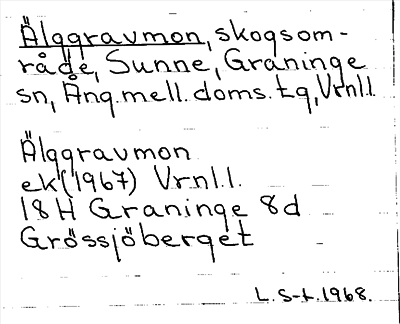 Älggravmon, skogsom-
råde, Sunne, Graninge
sn, Ång. mell. doms. tg, Vrnl.l.
Älggravmon
ek (1967) Vrnl.l.
18H Graninge 8d
Grössjöberget
L. S-t. 1968.